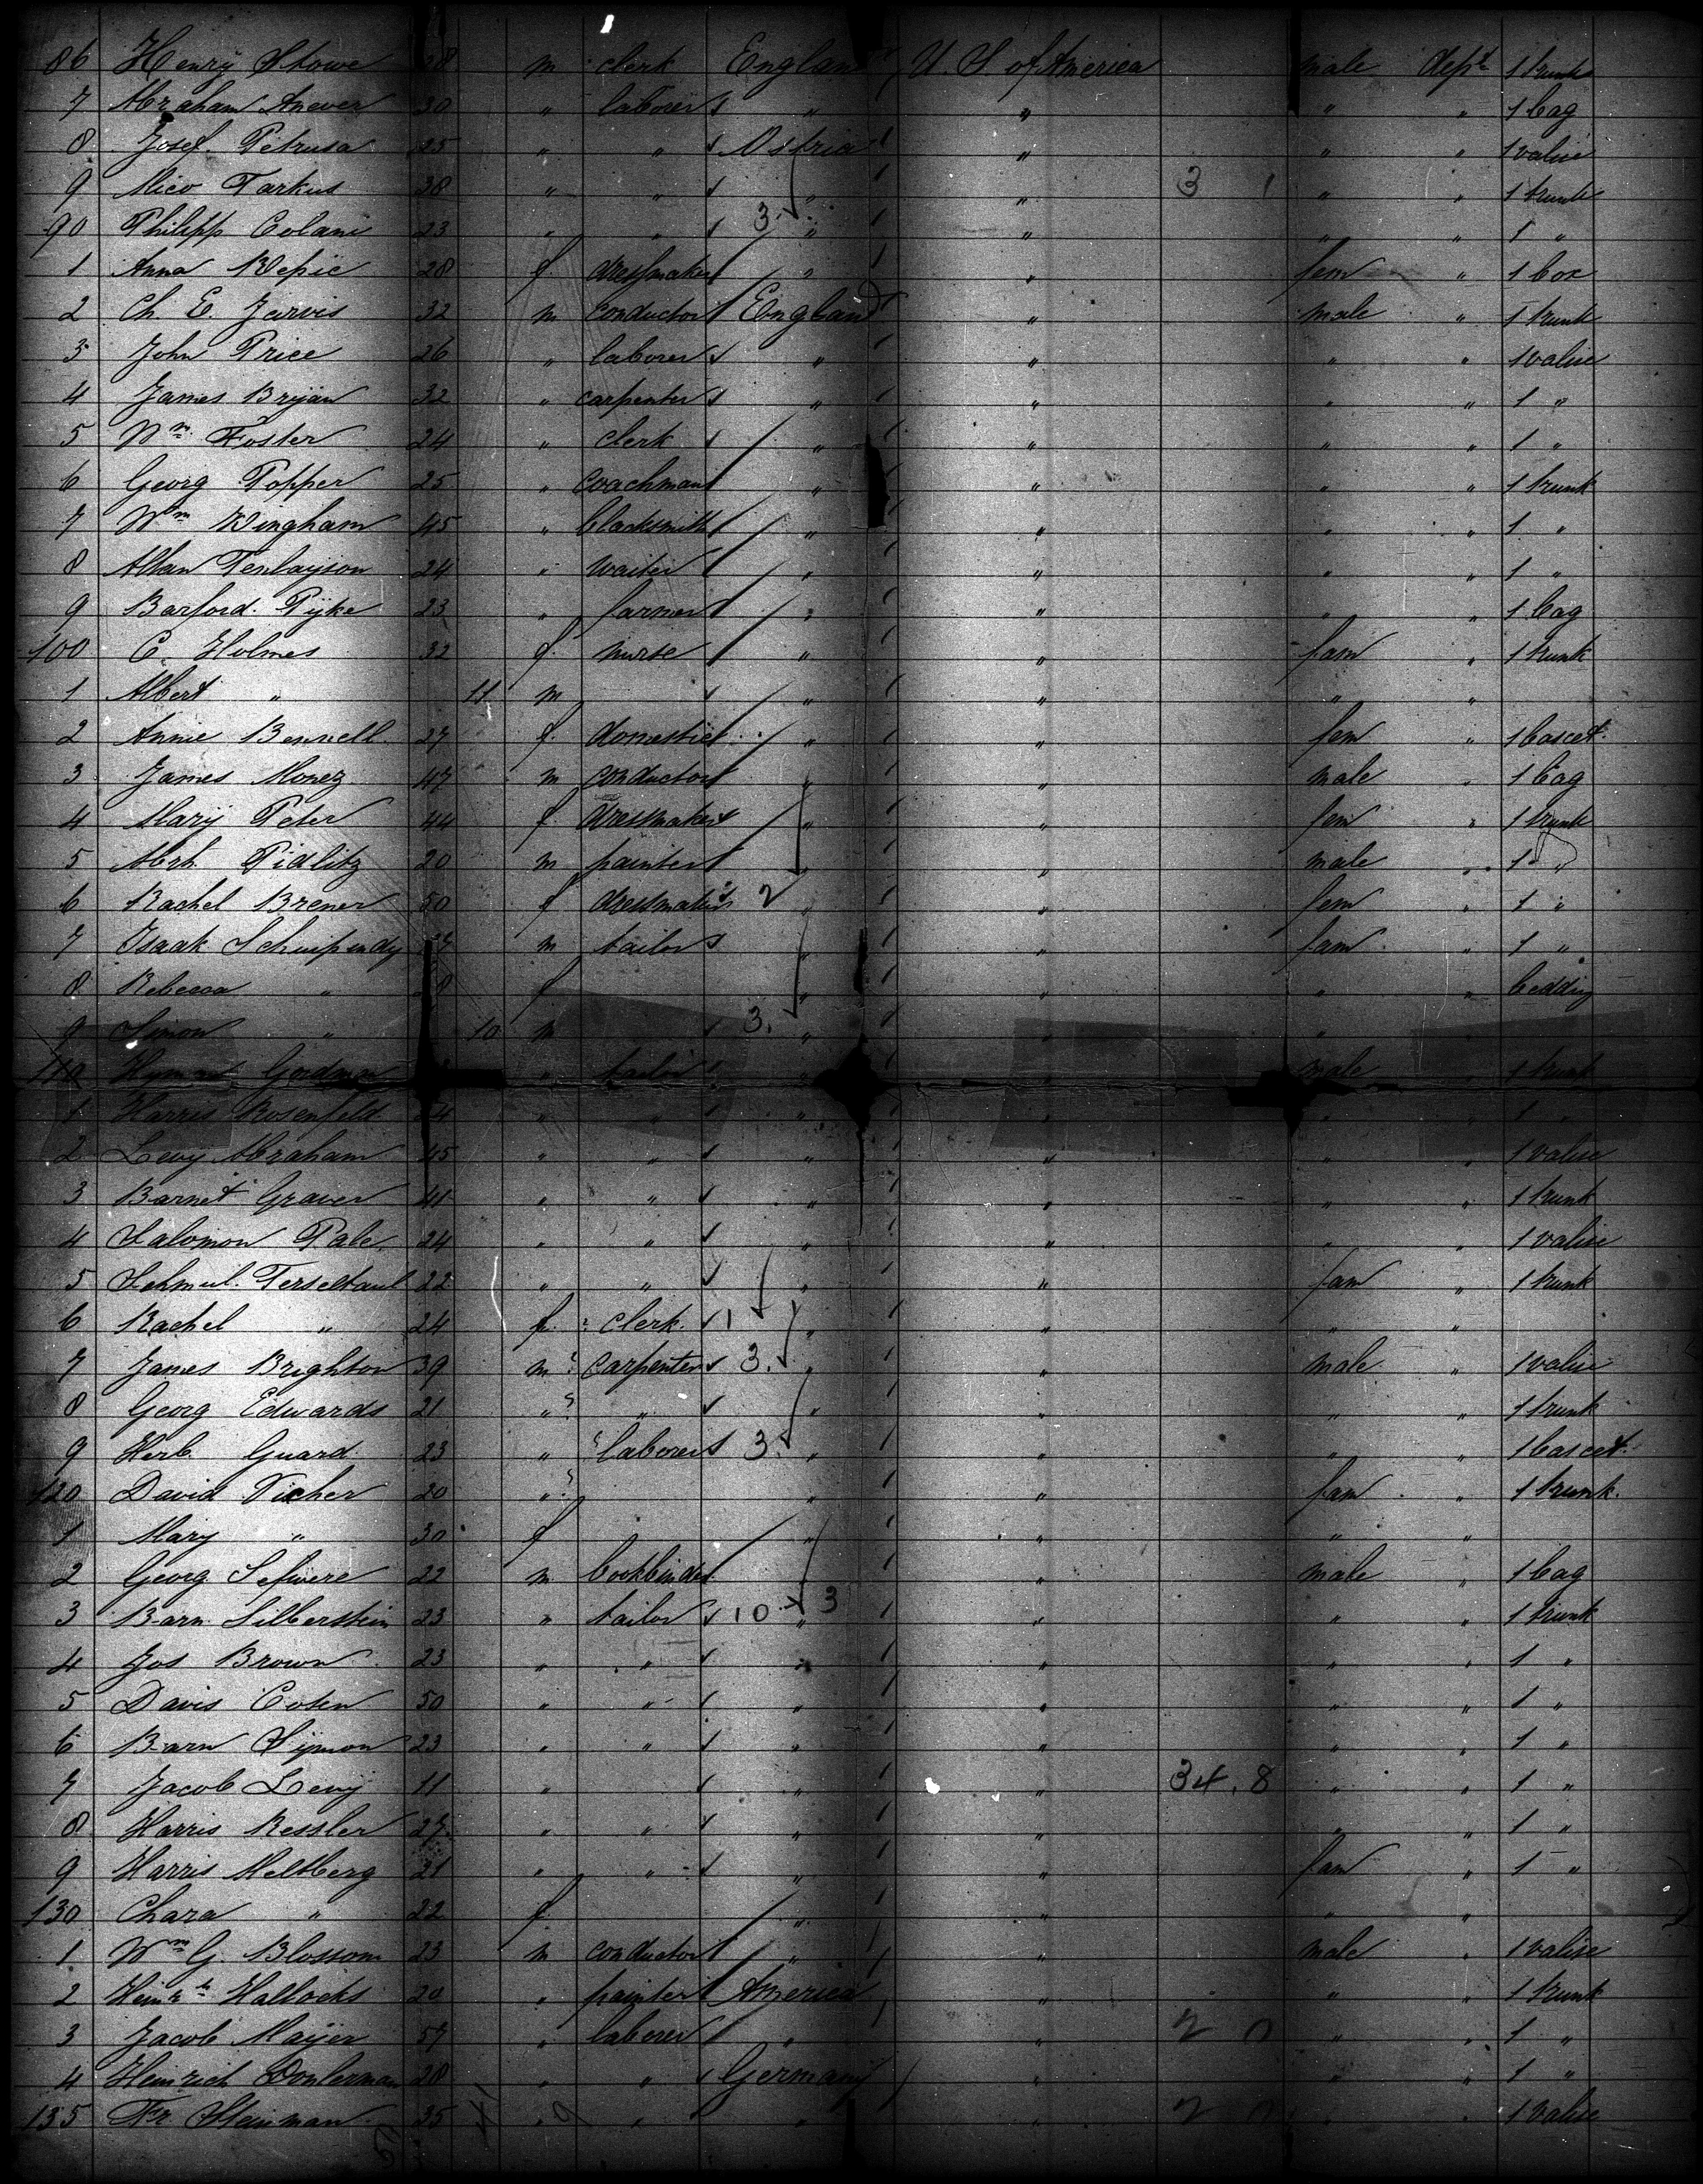 86 Henry Stowe 28 m clerk England U. S. of America male dept 1 trunk
7 Abraham Anever 30 " laborer " " " " 1 bag
8 Josef Petrusa 25 " " Ostria " " " 1 valise
9 Mico Tarkus 38 " " " " 3 1 " " 1 trunk
90 Philipp Colani 23 " " 3. " " " " 1 "
1 Anna 28 f. dressmaker " " fem " 1 box
2 Ch. E. Jarvis 32 m conductor England " male " 1 trunk
3 John Price 26 " laborer " " " " 1 valise
4 James Bryan 32 " carpenter " " " " 1 "
5 Wm Foster 24 " clerk " " " " 1 "
6 Georg Popper 25 " coachman " " " " 1 trunk
7 Wm Kingham 45 " blacksmith " " " " 1 "
8 Allan Tenlayson 24 " waiter " " " " 1 "
9 Barford Pyke 23 " farmer " " " " 1 bag
100 C. Holmes 32 f. nurse " " fam " 1 trunk
1 Albert " 11 m " " "
2 Annie Bennell 27 f. domestic " " fem " 1 bascet
3 James Monez 47 m conductor " " male " 1 bag
4 Mary Peter 44 f. dressmaker " " fem " 1 trunk
5 Abrh. Pidlitz 20 m painter " " male " 1 "
6 Rachel Brener 50 f dressmaker 2 " " fem " 1 "
7 Isaak m tailor " " fam " 1 "
8 Rebecca " f " " " " bedding
9 Simon " 10 m 3. " " "
110 Hyman Goodman " tailor " " male " 1 trunk
1 Harris Rosenfeld 24 " " " " " " 1 "
2 Levy Abraham 45 " " " " " " 1 valise
3 Barnet Graver 41 " " " " " " 1 trunk
4 Salomon Pale 24 " " " " " " 1 valise
5 Schmul 22 " " " " fam " 1 trunk
6 Rachel " 24 f. clerk. 1 " " " "
7 James Brighton 39 m carpenter 3. " " male " 1 valise
8 Georg Edwards 21 " " " " " " 1 trunk
9 Herb. Guard 23 " laborer 3. " " " " 1 bascet.
120 David Vicher 20 " " " fam " 1 trunk.
1 Mary " 30 f " " " "
2 Georg Sefwere 22 m bookbinder " male " 1 bag
3 Barn Silberstein 23 " tailor 10 3 " " " " 1 trunk
4 Jos Brown 23 " " " " " " 1 "
5 Davis Coten 50 " " " " " 1 "
6 Barn Symon 23 " " " " " " 1 "
7 Jacob Levy 11 " " " 34. 8 " " 1 "
8 Harris Kessler 27 " " " " " " 1 "
9 Harris Meltberg 21 " " " fam " 1 "
130 Chara " 22 f. " " " "
1 Wm G. Blossom 23 m conductor " " male " 1 valise
2 Heinrh Hallocks 20 " painter America " " " 1 trunk
3 Jacob Mayer 57 " laborer " " 2 0 " " 1 "
4 Heinrich 28 " " Germany " " " 1 "
135 Fr. Steinman 35 " " " " 2 " " 1 valise